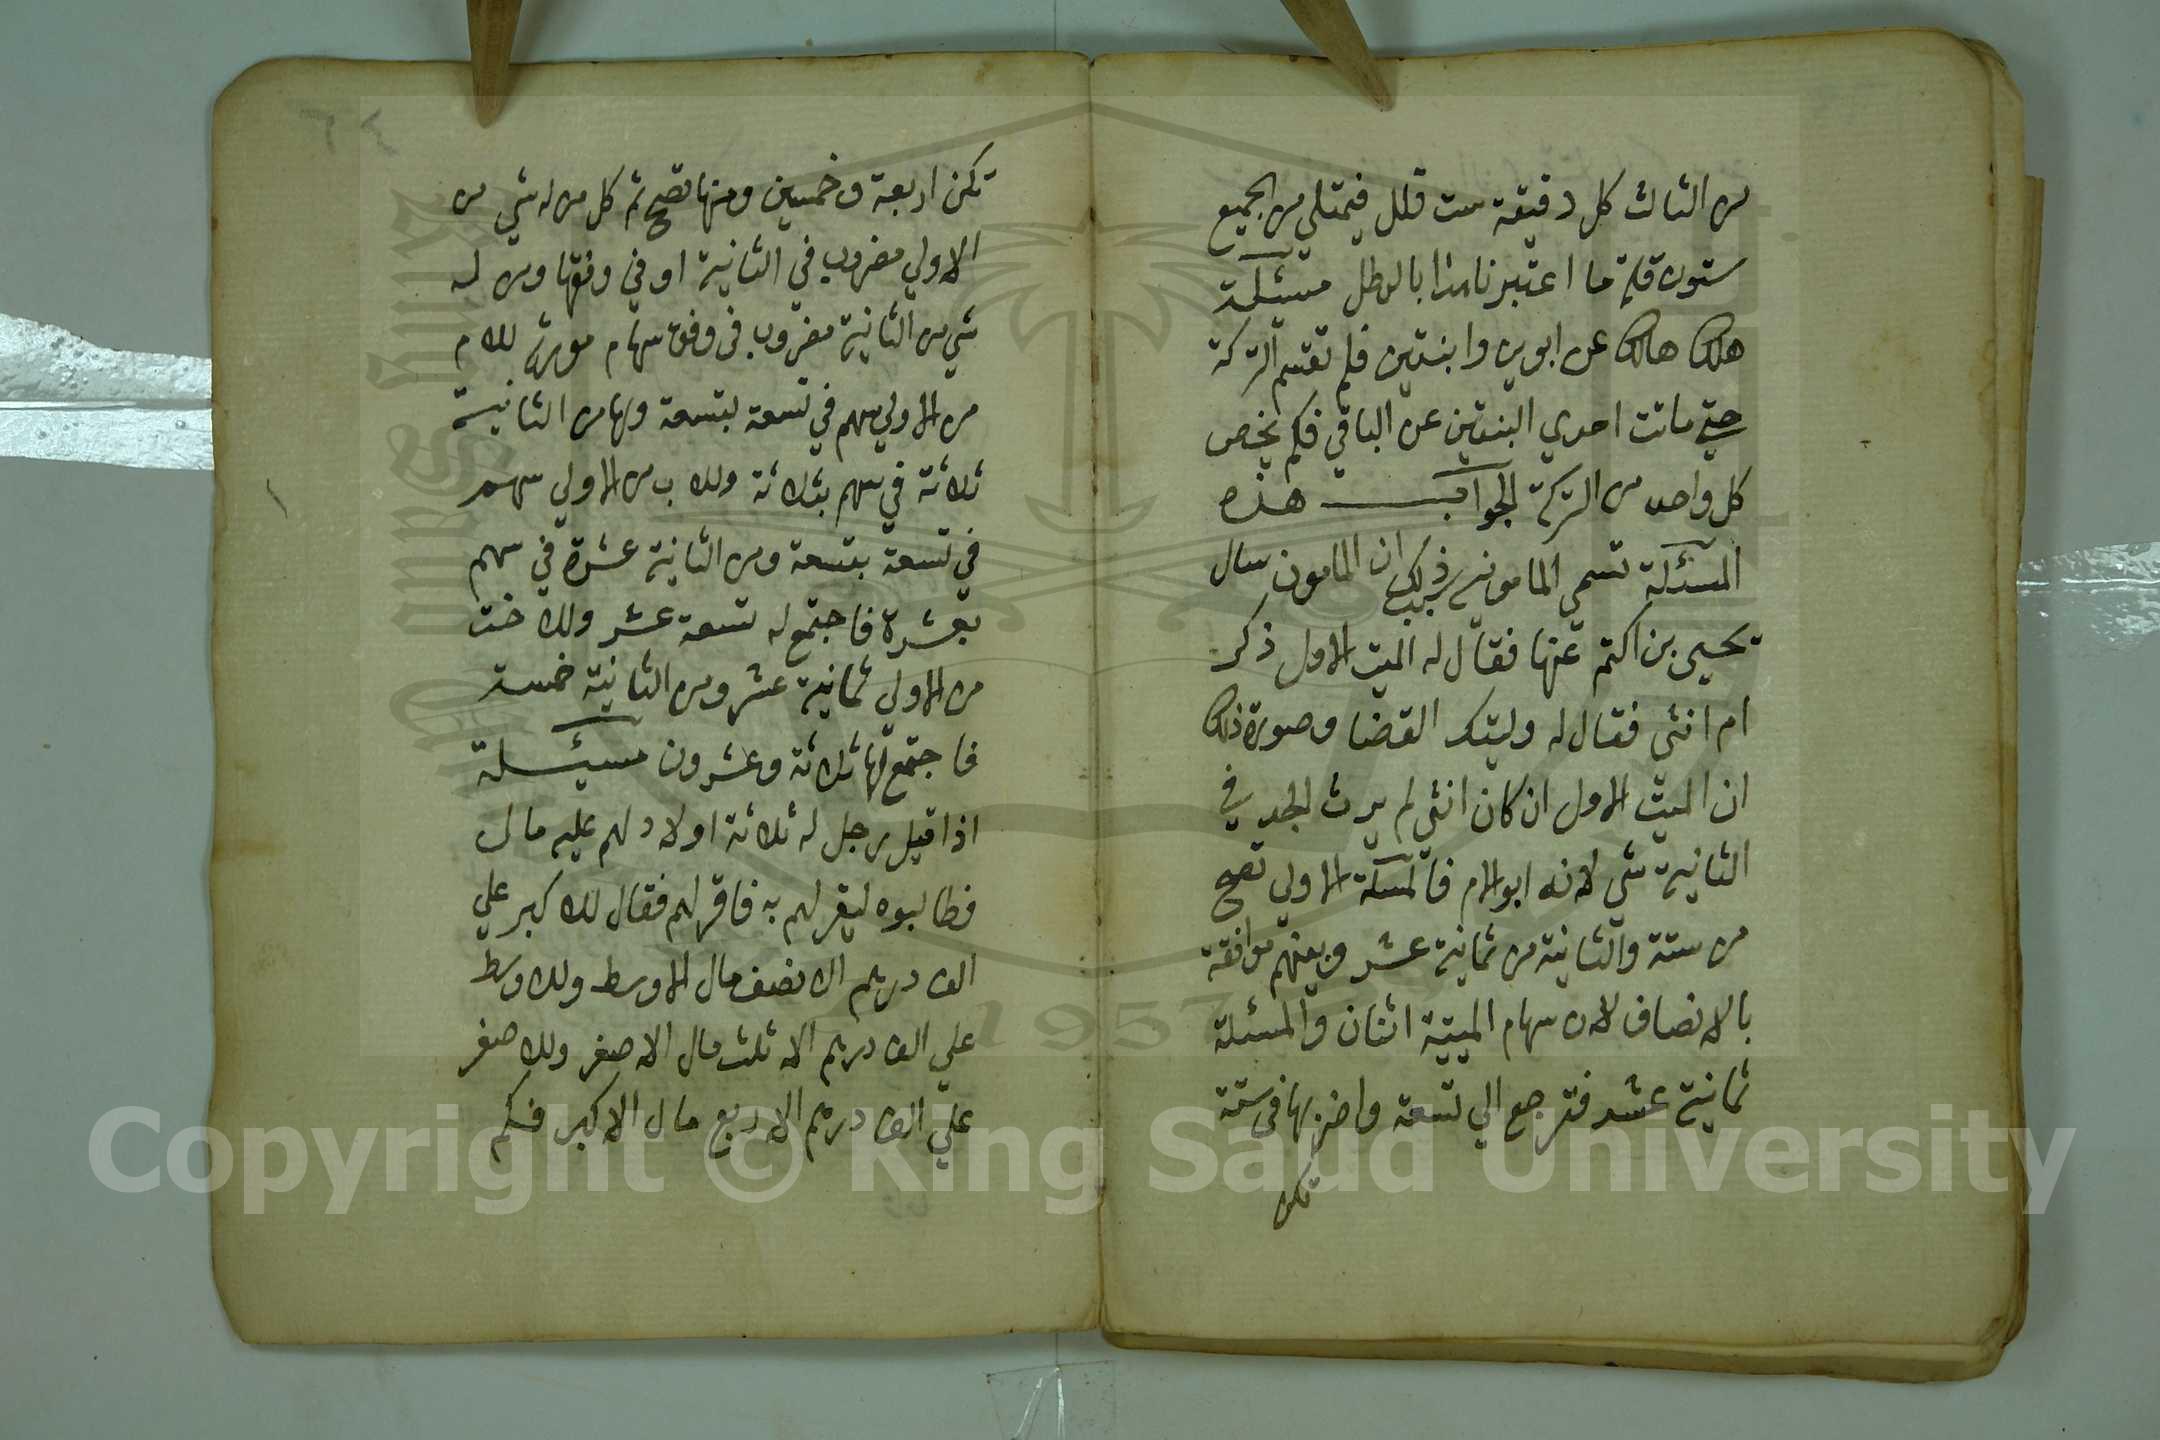 من الثالث كل دقيقة ست قلل فيمتلي من الجميع
ستون قلة ما اعتبرنا هذا بالرطل مسئلة
هلك هالك عن ابوين وابنتين فلم تقتسم التركة
حتي ماتت احدي البنتين عن الباقي فكم يخص
كل واحد من التركة الجواب هذه
المسئلة تسمي المامونية وذلك ان المامون سال
يحيى بن اكثم عنها فقال له الميت الاول ذكر
ام انثي فقال له وليتك القضا وصورة ذلك
ان الميت الاول ان كان انثي لم يرث الجد في
الثانية شي لانه ابو الام فالمسئلة الاولي تصح
من ستة والثانية من ثمانية عشر وبينهم موافقة
بالانصاف لان سهام الميتة اثنان والمسئلة
ثمانية عشر فترجع الي تسعة واضربها في ستة
تكن
تكن اربعة وخمسين ومنها تصح ثم كل من له شي من
الاولي مضروب في الثانية او في وفقها ومن له
شي من الثانية مضروب في وفق سهام مورثه للام
من الاولي سهم في تسعة بتسعة ولها من الثانية
ثلاثة في سهم بثلاثة وللاب من الاولي سهم
في تسعة بتسعة ومن الثانية عشرة في سهم
بعشرة فاجتمع له تسعة عشر وللاخت
من الاولي ثمانية عشر ومن الثانية خمسة
فاجتمع لها ثلاثة وعشرون مسيئلة
اذا قيل رجل له ثلاثة اولاد لهم عليه مال
فطالبوه ليقر لهم به فاقر لهم فقال للاكبر علي
الف درهم الا نصف مال الاوسط وللاوسط
علي الف درهم الا ثلث مال الاصغر وللاصغر
علي الف درهم الا ربع مال الاكبر فكم
1957
Copyright © King Saud University